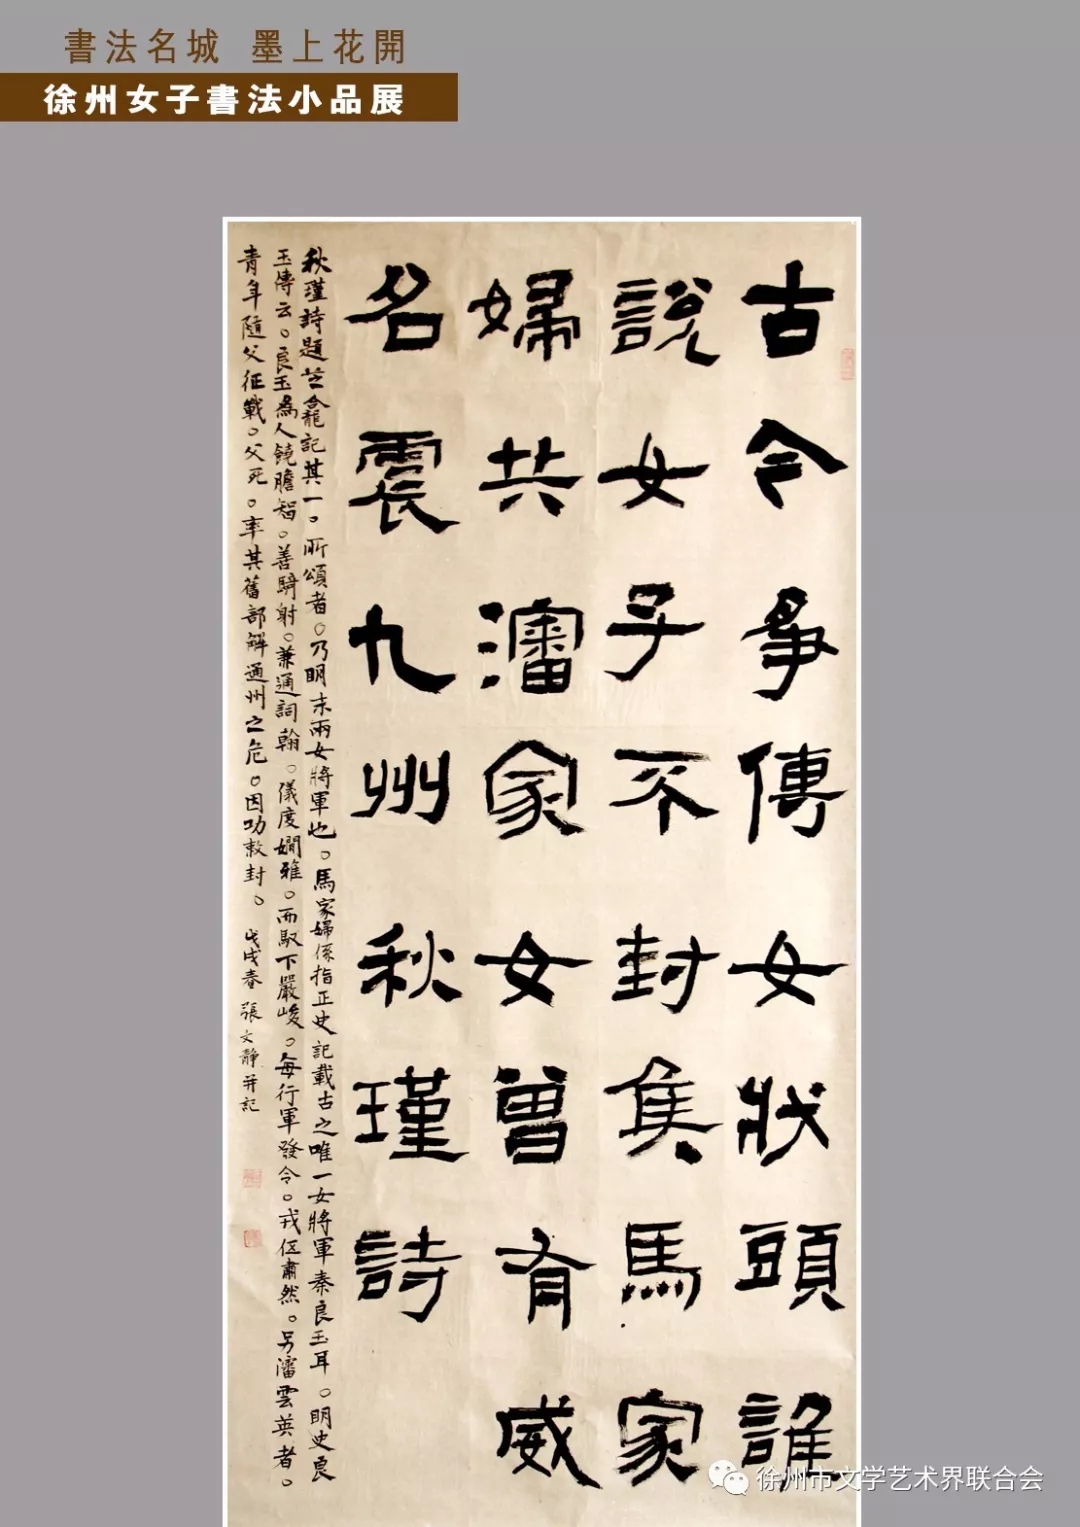 書法名城 墨上花開
徐州女子書法小品展
古今爭傳女狀頭誰
說女子不封侯馬家
婦共瀋家女曾有威
名震九州秋瑾詩
秋瑾詩題芝龕記其一。所頌者。乃明末兩女將軍也。馬家婦係指正史記載古之唯一女將軍秦良玉耳。明史良
玉傳云。良玉為人饒膽智。善騎射。兼通詞翰。儀度嫺雅。而馭下嚴峻。每行軍發令。戎伍肅然。另瀋雲英者。
青年隨父征戰。父死。率其舊部解通州之危。因功敕封。戊戌春張文靜并記
徐州市文学艺术界联合会